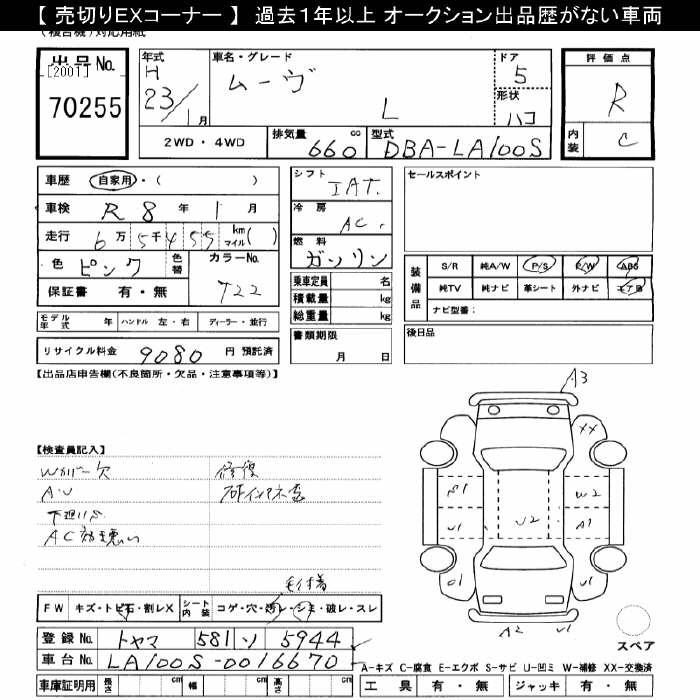 【 売切りEXコーナー 】 過去１年以上 オークション出品歴がない車両
出品No.
[2001]
70255
年式
H
23/1月
車名・グレード
ムーヴ
L
ドア
5
形状
ハコ
2WD・4WD
排気量
660
cc
型式
DBA-LA100S
評価点
R
内装
C
車歴
自家用・( )
車検
R 8 年 1 月
走行
6万 5千 4 5 5 km マイル( )
色
ピンク
色替
カラーNo.
T22
保証書 有・無
シフト
IAT.
冷房
AC
燃料
ガソリン
乗車定員 名
積載量 kg
総重量 kg
書類期限
月 日
セールスポイント
装備品
S/R 純A/W P/S P/W ABS
純TV 純ナビ 革シート 外ナビ エアB
ナビ型番:
後日品
モデル年式 年 ハンドル 左・右 ディーラー・並行
リサイクル料金 9080 円 預託済
【出品店申告欄(不良箇所・欠品・注意事項等)】
【検査員記入】
Wカバー欠
修復
AU
下廻りS
A3
XX
S1
W2
U1
U2
A1
U1
U1
A2
U1
スペア
FW キズ・トビ石・割レX シート内装 コゲ・穴・汚レ・シミ・破レ・スレ
登録No. トヤマ 581 ソ 5944
車台No. LA100S-0016670
A-キズ C-腐食 E-エクボ S-サビ U-凹ミ W-補修 XX-交換済
車庫証明用 長さ cm 幅 cm 高さ cm
工具 有・無 ジャッキ 有・無